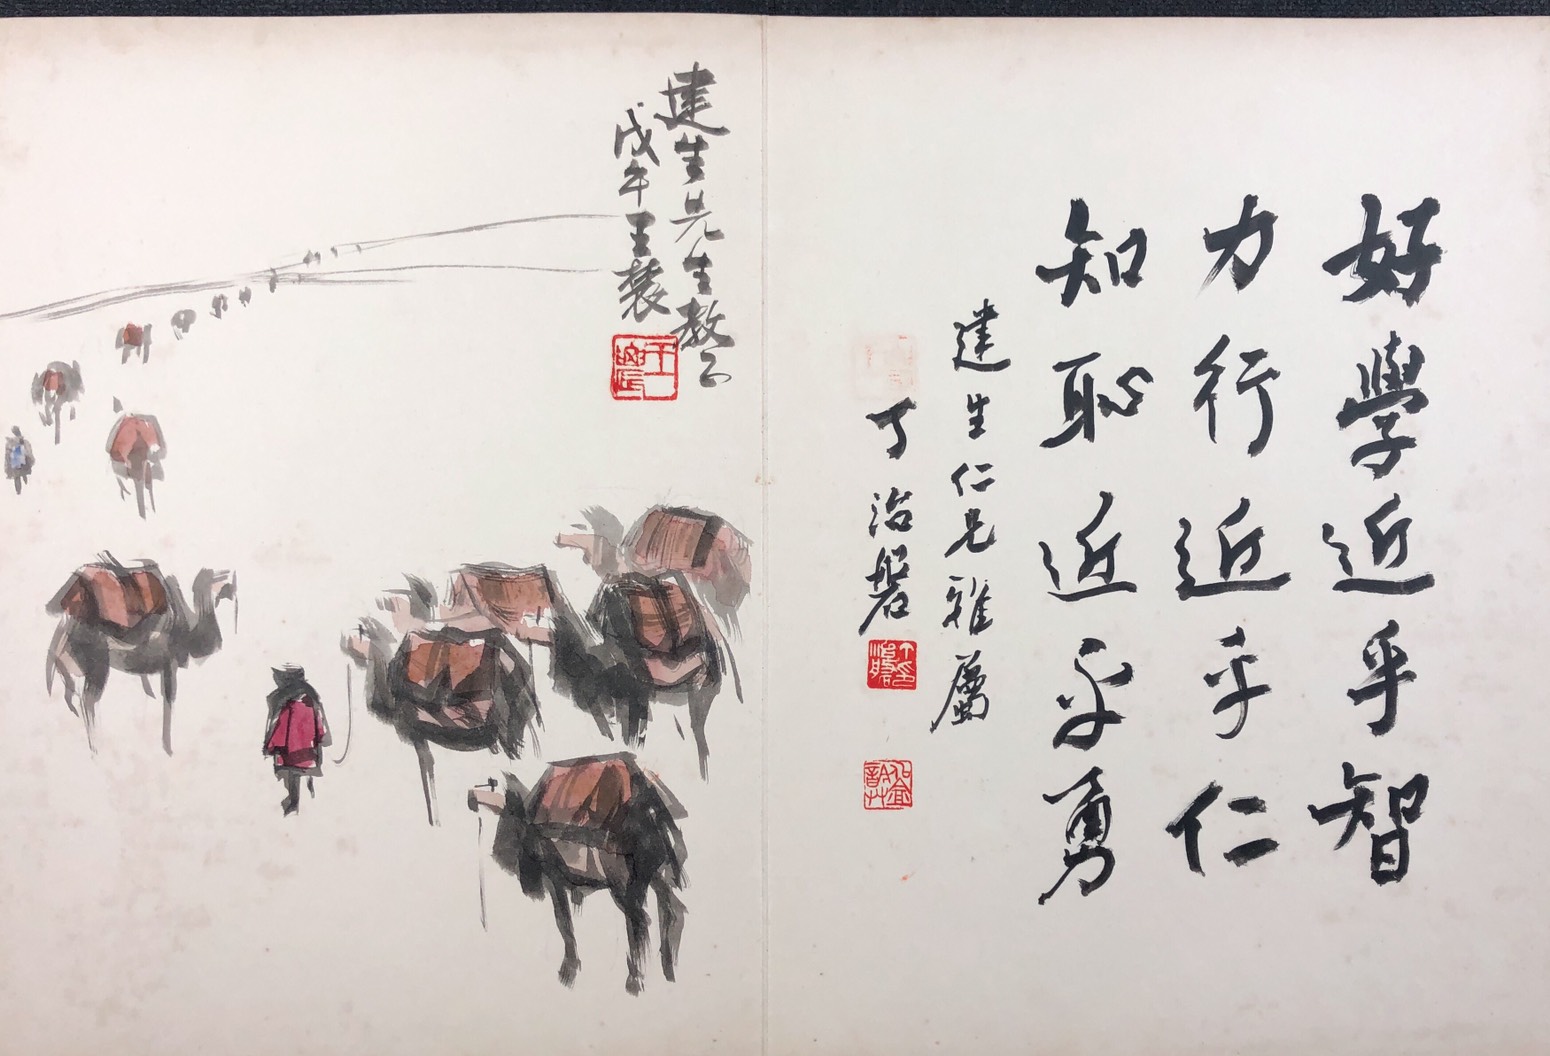 好學近乎智
力行近乎仁
知恥近乎勇
建生仁兄雅屬
丁治磐
建生先生教正
戊午王農